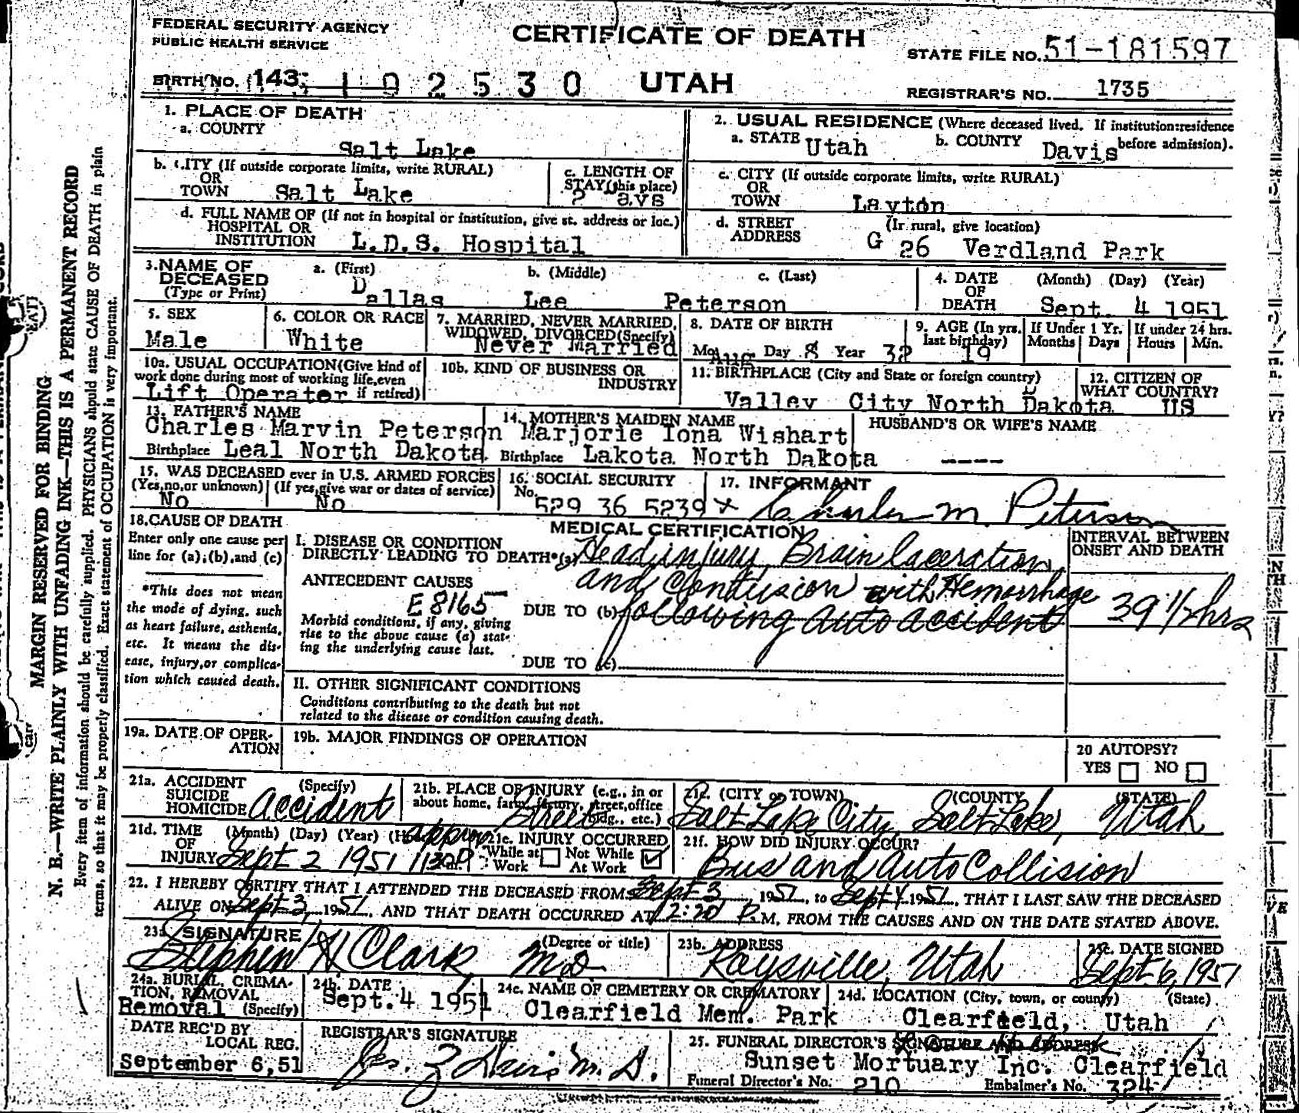 FEDERAL SECURITY AGENCY
PUBLIC HEALTH SERVICE
CERTIFICATE OF DEATH
STATE FILE NO. 51-181597
BIRTH NO. 143 102530 UTAH
REGISTRAR'S NO. 1735
1. PLACE OF DEATH
a. COUNTY
Salt Lake
2. USUAL RESIDENCE (Where deceased lived. If institution:residence before admission).
a. STATE Utah b. COUNTY Davis
b. CITY (If outside corporate limits, write RURAL)
OR
TOWN Salt Lake
c. LENGTH OF
STAY (this place)
c. CITY (If outside corporate limits, write RURAL)
OR
TOWN Layton
d. FULL NAME OF (If not in hospital or institution, give st. address or loc.)
HOSPITAL OR
INSTITUTION L.D.S. Hospital
d. STREET (In rural, give location)
ADDRESS G 26 Verdland Park
3. NAME OF
DECEASED
(Type or Print)
a. (First) b. (Middle) c. (Last)
Dallas Lee Peterson
4. DATE (Month) (Day) (Year)
OF
DEATH Sept. 4 1951
5. SEX
Male
6. COLOR OR RACE
White
7. MARRIED, NEVER MARRIED,
WIDOWED, DIVORCED(Specify)
Never Married
8. DATE OF BIRTH
Mo. Aug Day 8 Year 32
9. AGE (In yrs.
last birthday)
19
If Under 1 Yr.
Months Days
If under 24 hrs.
Hours Min.
10a. USUAL OCCUPATION(Give kind of
work done during most of working life,even
if retired)
Lift Operater
10b. KIND OF BUSINESS OR
INDUSTRY
11. BIRTHPLACE (City and State or foreign country)
Valley City North Dakota
12. CITIZEN OF
WHAT COUNTRY?
US
13. FATHER'S NAME
Charles Marvin Peterson
Birthplace Leal North Dakota
14. MOTHER'S MAIDEN NAME
Marjorie Iona Wishart
Birthplace Lakota North Dakota
HUSBAND'S OR WIFE'S NAME
----
15. WAS DECEASED ever in U.S. ARMED FORCES
(Yes,no,or unknown) (If yes,give war or dates of service)
No No
16. SOCIAL SECURITY
No. 529 36 5239
17. INFORMANT
x Charles M. Peterson
18. CAUSE OF DEATH
Enter only one cause per
line for (a),(b),and (c)
*This does not mean
the mode of dying, such
as heart failure, asthenia,
etc. It means the dis-
ease, injury,or complica-
tion which caused death.
MEDICAL CERTIFICATION
I. DISEASE OR CONDITION
DIRECTLY LEADING TO DEATH*(a) Head injury, Brain laceration
and Contusion with Hemorrhage
ANTECEDENT CAUSES
E8165
DUE TO (b) following auto accident
Morbid conditions, if any, giving
rise to the above cause (a) stat-
ing the underlying cause last.
DUE TO (c)
INTERVAL BETWEEN
ONSET AND DEATH
39 1/2 hrs
II. OTHER SIGNIFICANT CONDITIONS
Conditions contributing to the death but not
related to the disease or condition causing death.
19a. DATE OF OPER-
ATION
19b. MAJOR FINDINGS OF OPERATION
20 AUTOPSY?
YES NO
21a. ACCIDENT (Specify)
SUICIDE
HOMICIDE Accident
21b. PLACE OF INJURY (e.g., in or
about home, farm, factory, street,office
bldg., etc.) Street
21c. (CITY or TOWN) (COUNTY) (STATE)
Salt Lake City, Salt Lake, Utah
21d. TIME (Month) (Day) (Year)
OF
INJURY Sept 2 1951 approx
21e. INJURY OCCURRED
While at Work Not While At Work
21f. HOW DID INJURY OCCUR?
Bus and Auto Collision
22. I HEREBY CERTIFY THAT I ATTENDED THE DECEASED FROM Sept 3, 1951, to Sept 4 1951, THAT I LAST SAW THE DECEASED
ALIVE ON Sept 3, 1951, AND THAT DEATH OCCURRED AT 12:20 P.M, FROM THE CAUSES AND ON THE DATE STATED ABOVE.
23a SIGNATURE (Degree or title)
Stephen H Clark, M.D.
23b. ADDRESS
Kaysville, Utah
23c. DATE SIGNED
Sept 6, 1951
24a. BURIAL, CREMA-
TION, REMOVAL
Removal (Specify)
24b. DATE
Sept. 4 1951
24c. NAME OF CEMETERY OR CREMATORY
Clearfield Mem. Park
24d. LOCATION (City, town, or county) (State)
Clearfield, Utah
DATE REC'D BY
LOCAL REG.
September 6,51
REGISTRAR'S SIGNATURE
M.D.
25. FUNERAL DIRECTOR'S SIGNATURE AND ADDRESS
Sunset Mortuary Inc. Clearfield
Funeral Director's No. 210 Embalmer's No. 324
MARGIN RESERVED FOR BINDING
N. B.—WRITE PLAINLY WITH UNFADING INK—THIS IS A PERMANENT RECORD
Every item of information should be carefully supplied. PHYSICIANS should state CAUSE OF DEATH in plain
terms, so that it may be properly classified. Exact statement of OCCUPATION is very important.